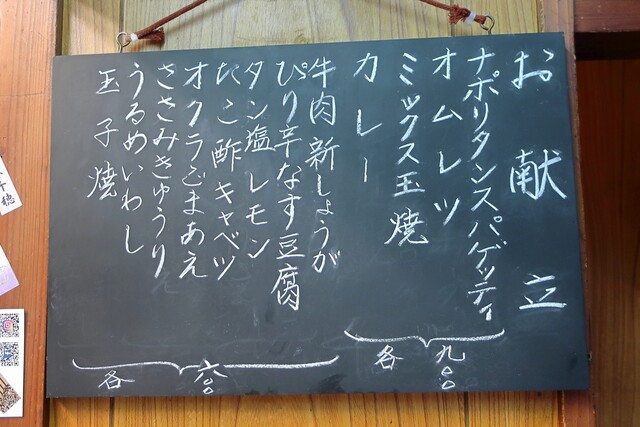 お献立
ナポリタンスパゲッティ
オムレツ
ミックス玉焼
カレー
各九〇〇
牛肉新しょうが
ぴり辛なす豆腐
タン塩レモン
たこ酢キャベツ
オクラごまあえ
ささみきゅうり
うるめいわし
玉子焼
各六〇〇